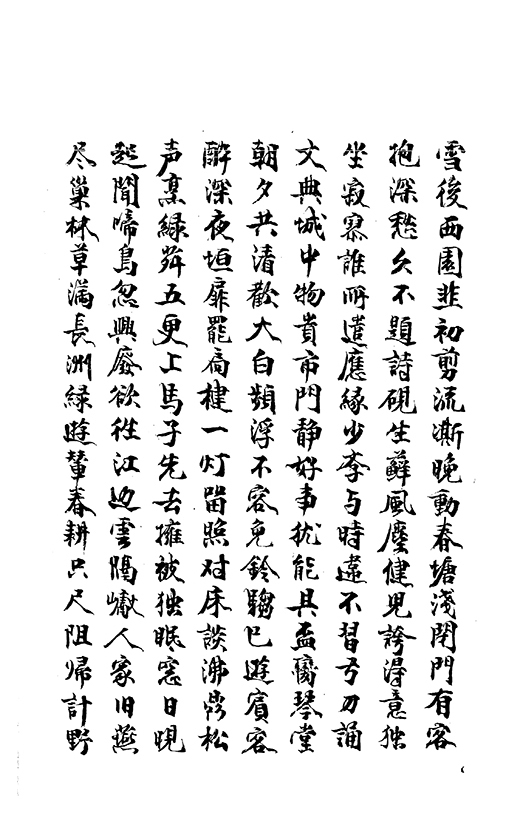 雪後西園韭初剪流澌晚動春塘淺閉門有客
抱深愁久不題詩硯生蘚風塵健児誇得意独
坐寂寥誰所遣應緣少李与時違不習弓刀誦
文典城中物貴市門静好事犹能具盃臠琴堂
朝夕共清歡大白頻浮不容免鈴騶已避賓客
酔深夜垣扉罷扃楗一灯留照对床談沸鼎松
声烹緑荈五更上馬子先去擁被独眠窓日晛
起聞啼鳥忽興廢欲往江边雲隔巘人家旧燕
尽巢林草滿長洲緑遊輦春耕只尺阻帰計野